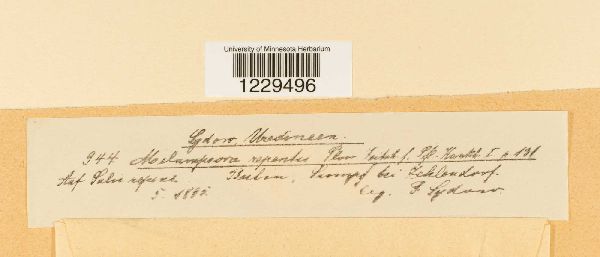 University of Minnesota Herbarium
1229496
Sydow, Uredineen.
944 Melampsora repentis Plow. Zeitsch. f. Pfl. Krankh. I p 131
Auf Salix repens. Berlin, Sumpf bei Zehlendorf.
5. 1895. leg. P. Sydow.